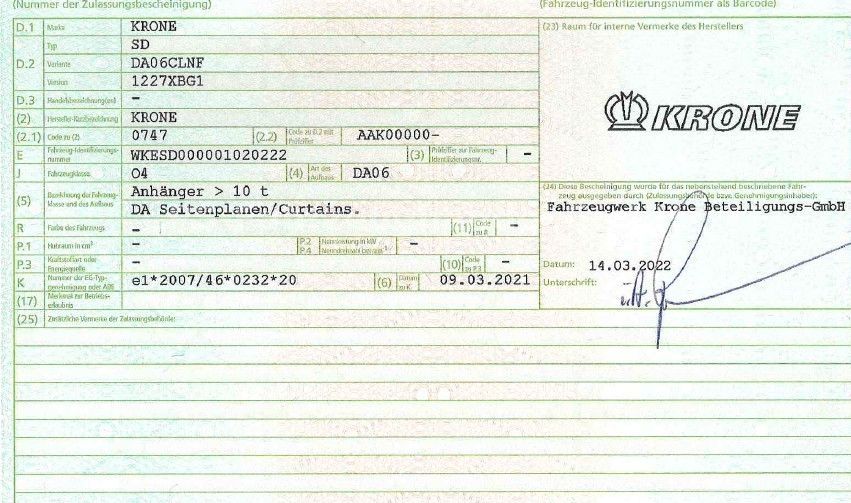 (Nummer der Zulassungsbescheinigung)
(Fahrzeug-Identifizierungsnummer als Barcode)
D.1 Marke KRONE
Typ SD
D.2 Variante DA06CLNF
Version 1227XBG1
D.3 Handelsbezeichnung(en) –
(2) Hersteller-Kurzbezeichnung KRONE
(2.1) Code zu (2) 0747 (2.2) Code zu D.2 mit Prüfziffer AAK00000-
E Fahrzeug-Identifizierungsnummer WKESD000001020222 (3) Prüfziffer zur Fahrzeug-Identifizierungsnr. –
J Fahrzeugklasse O4 (4) Art des Aufbaus DA06
(5) Bezeichnung der Fahrzeugklasse und des Aufbaus Anhänger > 10 t
DA Seitenplanen/Curtains.
R Farbe des Fahrzeugs – (11) Code zu R –
P.1 Hubraum in cm³ – P.2 P.4 Nennleistung in kW Nenndrehzahl bei min⁻¹ –
P.3 Kraftstoffart oder Energiequelle – (10) Code zu P.3 –
K Nummer der EG-Typgenehmigung oder ABE e1*2007/46*0232*20 (6) Datum zu K 09.03.2021
(17) Merkmal zur Betriebserlaubnis
(25) Zusätzliche Vermerke der Zulassungsbehörde:
(23) Raum für interne Vermerke des Herstellers
KRONE
(24) Diese Bescheinigung wurde für das nebenstehend beschriebene Fahrzeug ausgegeben durch (Zulassungsbehörde bzw. Genehmigungsinhaber):
Fahrzeugwerk Krone Beteiligungs-GmbH
Datum: 14.03.2022
Unterschrift: